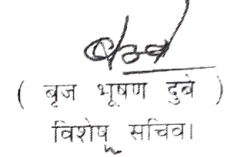 ( बृज भूषण दुबे )
विशेष सचिव।